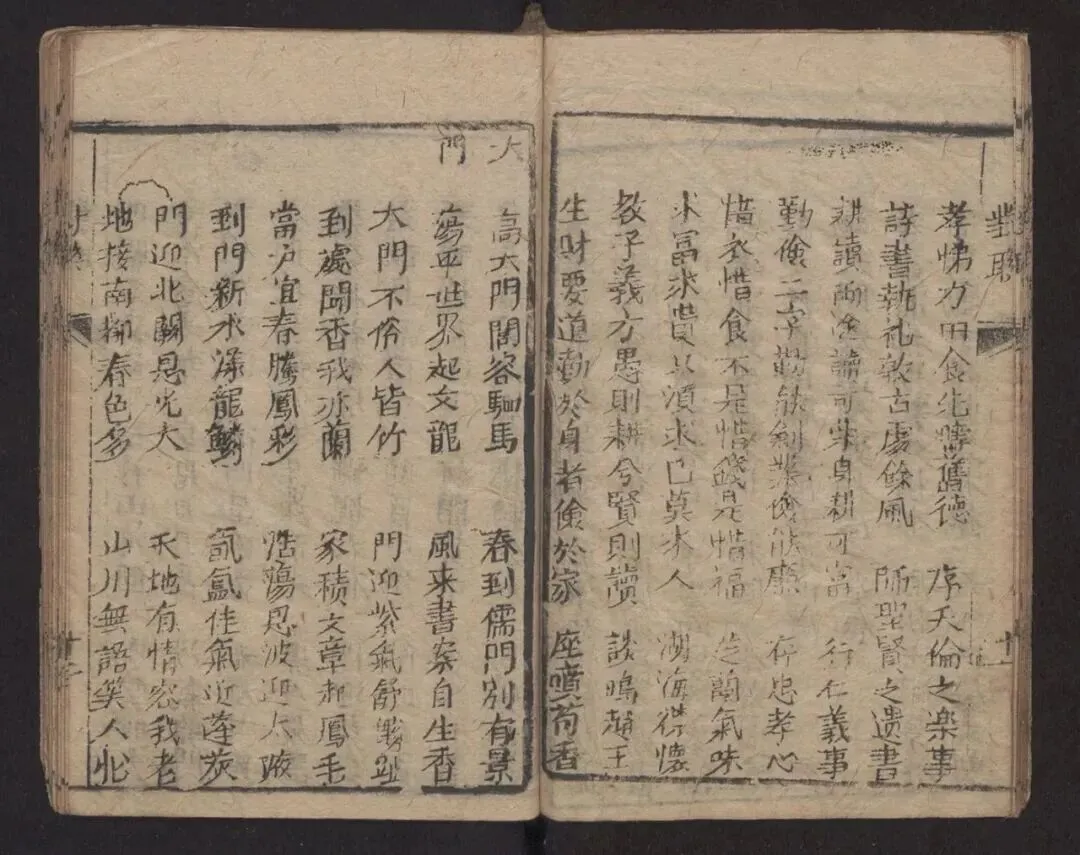 孝悌力田食先疇舊德 序天倫之楽事
詩書執礼敦古處餘風 師聖賢之遺書
耕讀两途讀可荣身耕可富 行仁義事
勤儉二字勤能創業儉能 存忠孝心
惜衣惜食不是惜錢是惜福 芝蘭氣味
求冨求貴只須求已莫求人 湖海襟懷
教子義方愚則耕兮賢則讀 談鳴趙王
生財要道勤於身者儉於家 座噴荀香
大門
高大門閭容駟馬 春到儒門別有景
蕩平世界起文龍 風来書案自生香
大門不俗人皆竹 門迎紫氣舒麟趾
到處聞香我亦蘭 家積文章起鳳毛
當戶宜春騰鳳彩 浩蕩恩波迎大
到門新水漾龍鱗 氤氳佳氣近蓬茨
門迎北闕恩光大 天地有情容我老
地接南春色多 山川無語笑人